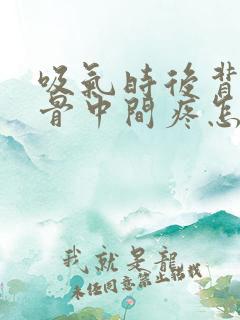 吸氣時後背
骨中間疼怎
我就是龍
未经同意禁止搭载